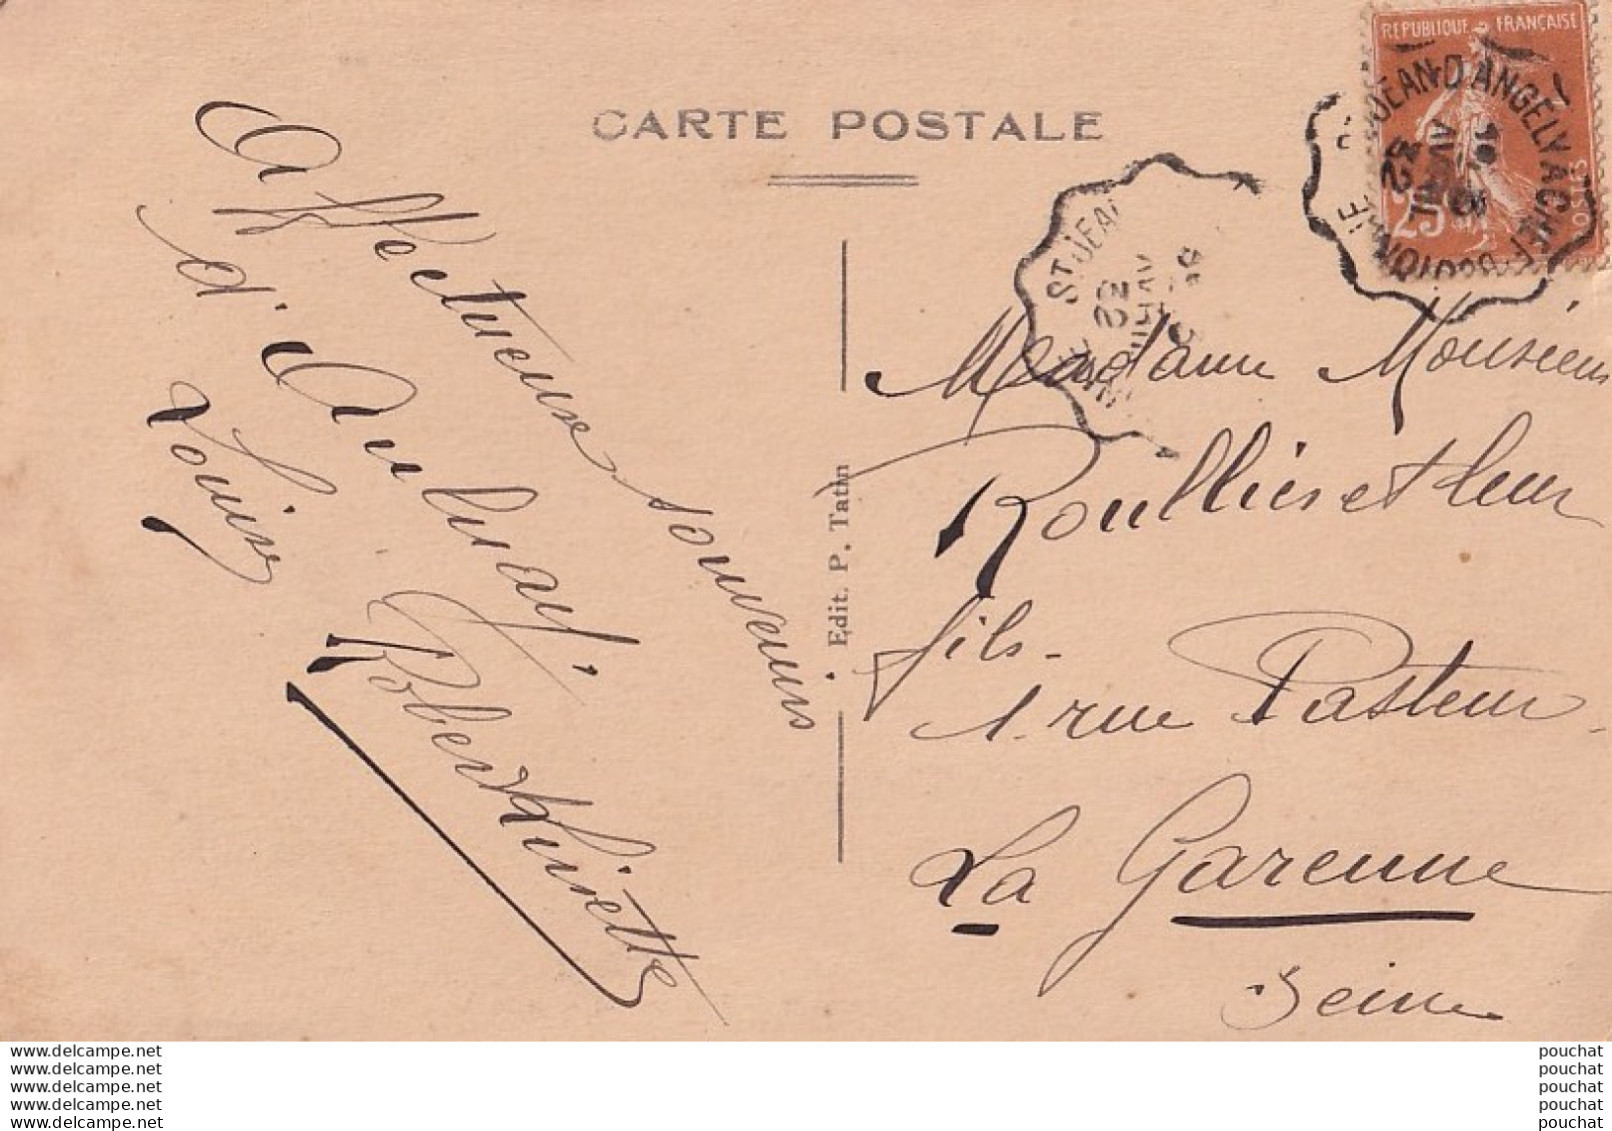 CARTE POSTALE
Affectueux souvenirs
d'Aulnay.
Louise
Robert Liniette
Edit. P. Tatin
REPUBLIQUE FRANÇAISE
25
ST JEAN-D'ANGELY A CHEF-BOUTONNE
AVRIL
32
ST JEAN
32
Madame Monsieur
Roullier et leur
fils-
1. rue Pasteur
La Garenne
Seine
www.delcampe.net
www.delcampe.net
www.delcampe.net
www.delcampe.net
www.delcampe.net
pouchat
pouchat
pouchat
pouchat
pouchat